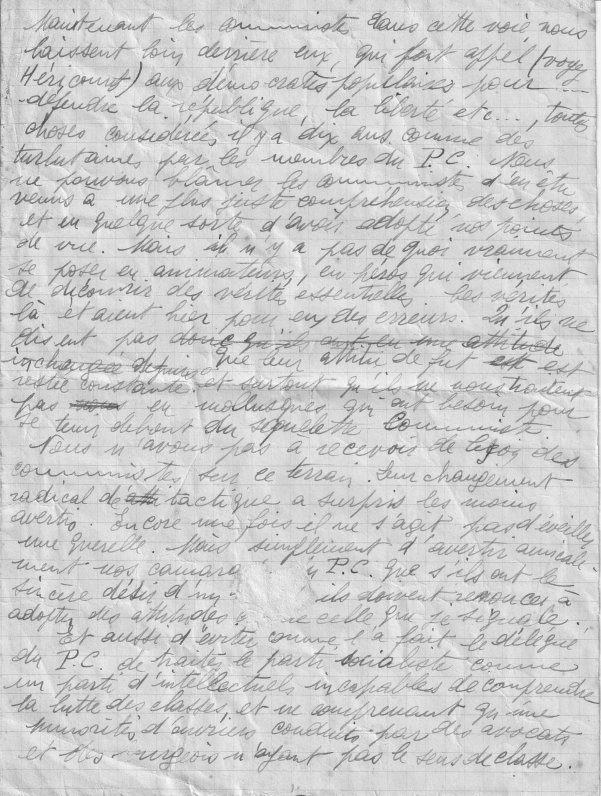 Maintenant les communistes dans cette voie nous
laissent loin derrière eux, qui font appel (voyez
Héricourt) aux démocrates populaires pour ....
défendre la république, la liberté etc..., toutes
choses considérées il y a dix ans comme des
par les membres du P.C. Nous
ne pouvons blâmer les communistes d'en être
venus à une plus juste compréhension des choses,
et en quelque sorte d'avoir adopté nos points
de vue. Mais il n'y a pas de quoi vraiment
se poser en animateurs, en héros qui viennent
de découvrir des vérités essentielles. Ces vérités
là étaient hier pour eux des erreurs. Qu'ils ne
disent pas donc qu'ils ont eu une attitude
inchangée depuis que leur attitude fut est est
restée constante et surtout qu'ils ne nous traitent
pas en mollusques qui ont besoin pour
se tenir debout du squelette communiste
Nous n'avons pas à recevoir de leçon des
communistes sur ce terrain. Leur changement
radical de tactique a surpris les moins
avertis. Encore une fois il ne s'agit pas d'éveiller
une querelle. Mais simplement d'avertir amicale-
ment nos camara P.C. que s'ils ont le
sincère désir d' ils doivent renoncer à
adopter des attitudes celle que je signale.
Et aussi d'éviter comme l'a fait le délégué
du P.C. de traiter le parti socialiste comme
un parti d'intellectuels incapables de comprendre
la lutte des classes, et ne comprenant qu'une
minorité d'ouvriers conduits par des avocats
et des bourgeois n'ayant pas le sens de classe.